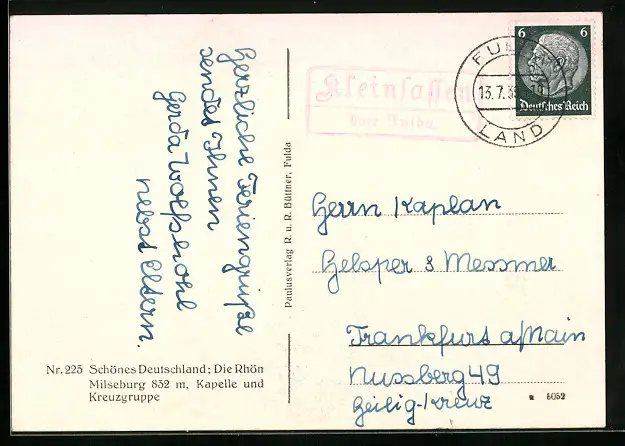 Herzliche Feriengrüße
sendet Ihnen
Gerda Wolfskohl
nebst Eltern.
Nr. 225 Schönes Deutschland: Die Rhön
Milseburg 832 m, Kapelle und
Kreuzgruppe
Paulusverlag R. u. R. Büttner, Fulda
Kleinsassen
über Fulda
FULDA
13.7.3
LAND
6 6
Deutsches Reich
Herrn Kaplan
Gelsper & Messmer
Frankfurt a/Main
Nussberg 49
Heilig-Kreuz
5052